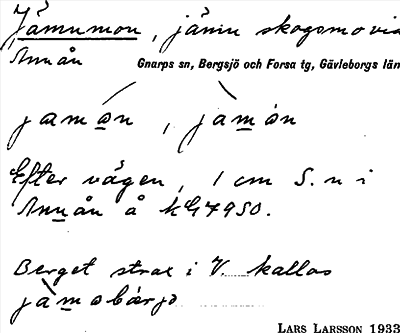 Jämnmon, jämn skogsmo vid
Annån Gnarps sn, Bergsjö och Forsa tg, Gävleborgs län
jamon, jamon
Efter vägen, 1 cm S. n i
Annån å kG4950.
Berget strax i V. kallas
jamobärjo
LARS LARSSON 1933